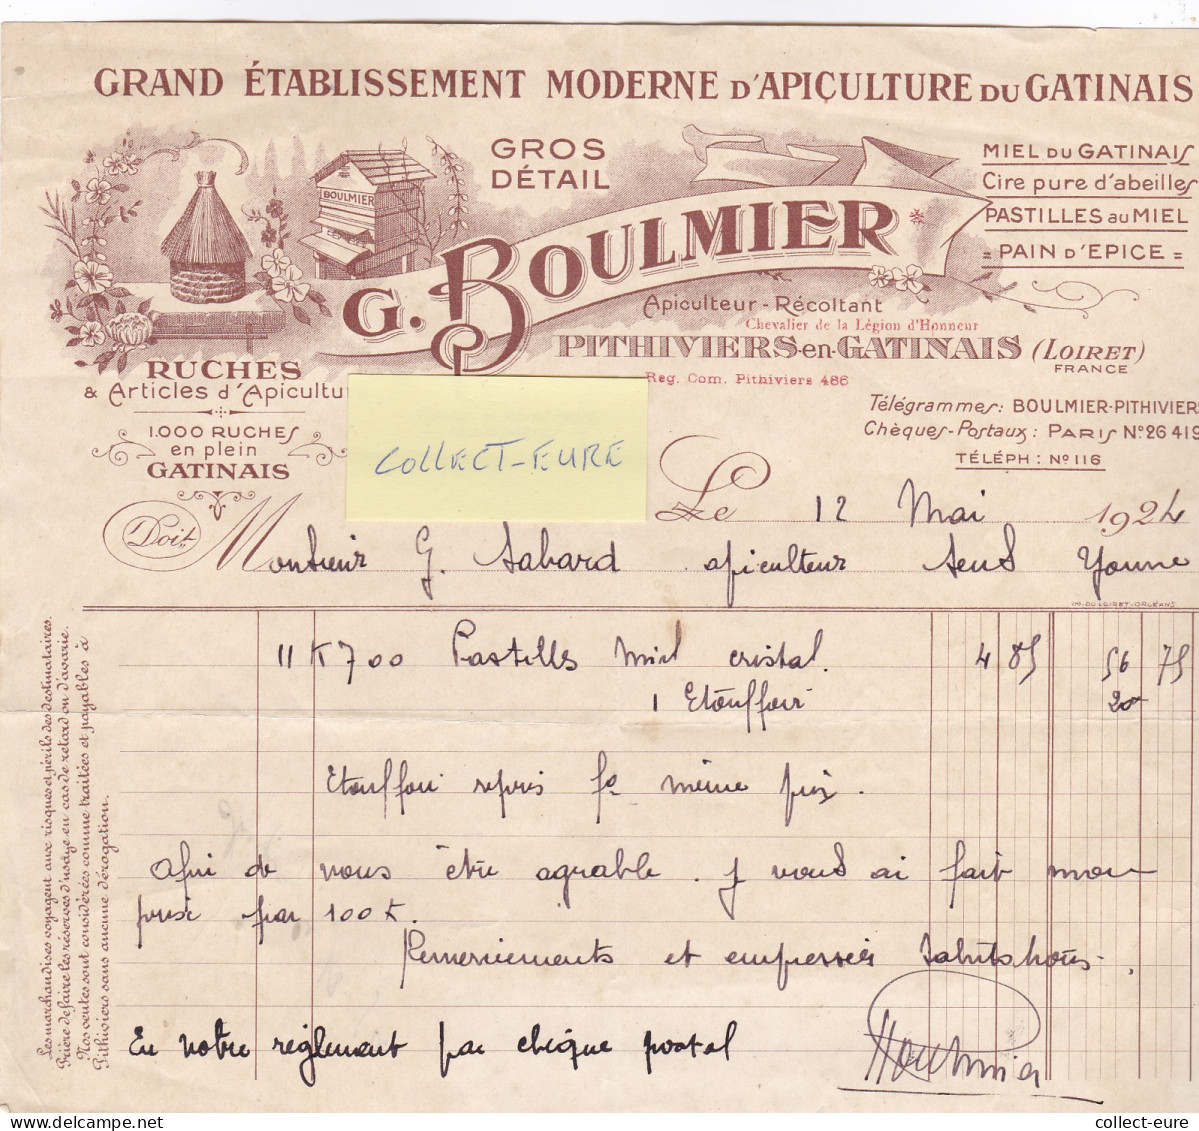 GRAND ÉTABLISSEMENT MODERNE D'APICULTURE DU GATINAIS
GROS
DÉTAIL
MIEL DU GATINAIS
Cire pure d'abeilles
PASTILLES AU MIEL
= PAIN D'ÉPICE =
BOULMIER
G. BOULMIER
Apiculteur - Récoltant
Chevalier de la Légion d'Honneur
PITHIVIERS-en-GATINAIS (LOIRET)
FRANCE
Reg. Com. Pithiviers 486
RUCHES
& Articles d'Apicultu
1.000 RUCHES
en plein
GATINAIS
COLLECT-EURE
Télégrammes: BOULMIER-PITHIVIERS
Chèques-Postaux: PARIS N° 26 419
TÉLÉPH: N° 116
Le 12 Mai 1924
Doit Monsieur G. Sabard apiculteur Sens Yonne
IM. DU LOIRET-ORLÉANS
11 K 700 Pastilles Miel cristal. 4 85 56 75
1 Etouffoir 20
Etouffoir repris pr même prix.
Afin de vous être agréable. J vous ai fait mon
prix par 100 K.
Remerciements et empressées Salutations.
En votre règlement par chèque postal
Boulmier
Les marchandises voyagent aux risques et périls des destinataires.
Prière de faire les réserves d'usage en cas de retard ou d'avarie.
Nos ventes sont considérées comme traitées et payables à
Pithiviers sans aucune dérogation.
collect-eure